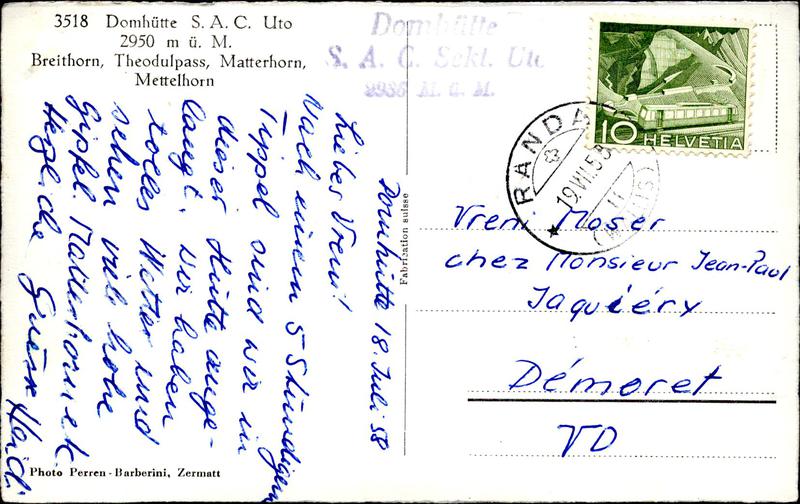 3518 Domhütte S. A. C. Uto
2950 m ü. M.
Breithorn, Theodulpass, Matterhorn,
Mettelhorn
Domhütte
S. A. C. Sekt. Uto
2936 M. ü. M.
HELVETIA
10
RANDA
19.VII.58
11
(VALAIS)
Domhütte 18. Juli 58
Liebes Vreni!
Nach einem 5 Stündigen
Tippel sind wir in
dieser Hütte ange-
langt. Wir haben
tolles Wetter und
sehen viele hohe
Gipfel. Matterhorn etc.
Herzliche Grüsse Heidi
Fabrication suisse
Vreni Moser
chez Monsieur Jean-Paul
Jaquiéry
Démoret
VD
Photo Perren-Barberini, Zermatt